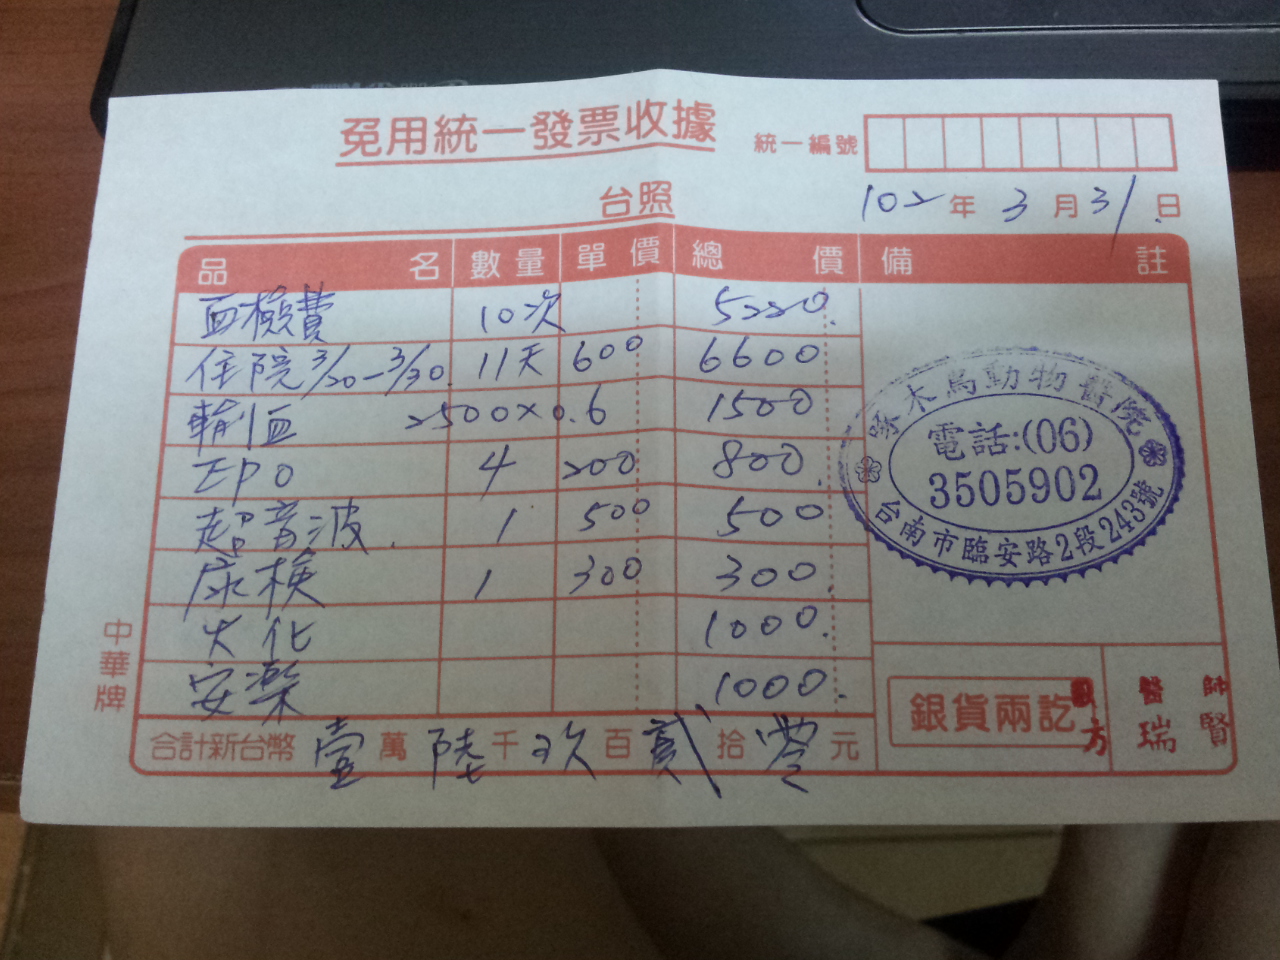 免用統一發票收據
統一編號
台照
102年3月31日
品名 數量 單價 總價 備註
血檢費 10次 5220.
住院3/20-3/30. 11天 600 6600
輸血 2500×0.6 1500
EPO 4 200 800.
超音波. 1 500 500
尿檢 1 300 300.
火化 1000.
安樂 1000.
合計新台幣壹萬陸千玖百貳拾零元
啄木鳥動物醫院
電話:(06)
3505902
台南市臨安路2段243號
銀貨兩訖
醫師
方瑞賢
中華牌